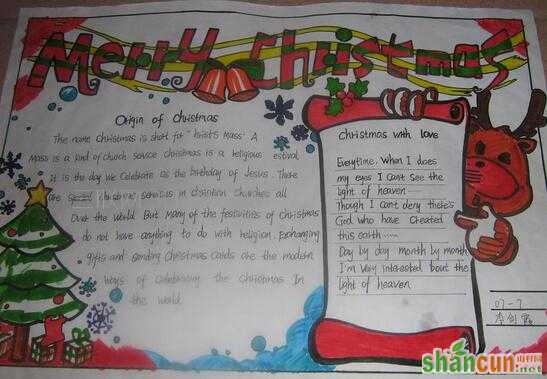 Merry Christmas
Origin of Christmas
The name Christmas is short for "Christ's Mass" A
Mass is a kind of church service Christmas is a religious estival
it is the day we Celebrate as the birthday of Jesus. There
are special christmas services in christian churches all
Over the World But many of the festivities of Christmas
do not have anything to do with religion. Exchanging
gifts and sending Christmas Cards are the modern
ways of Celebrating the Christmas In
the world.
Christmas with love
Everytime. When I does
my eyes I can't see the
light of heaven
Though I can't deny there's
God who have created
this earth
Day by day month by month
I'm very interested bout the
light of heaven
07-7
shancun
山村网
.net